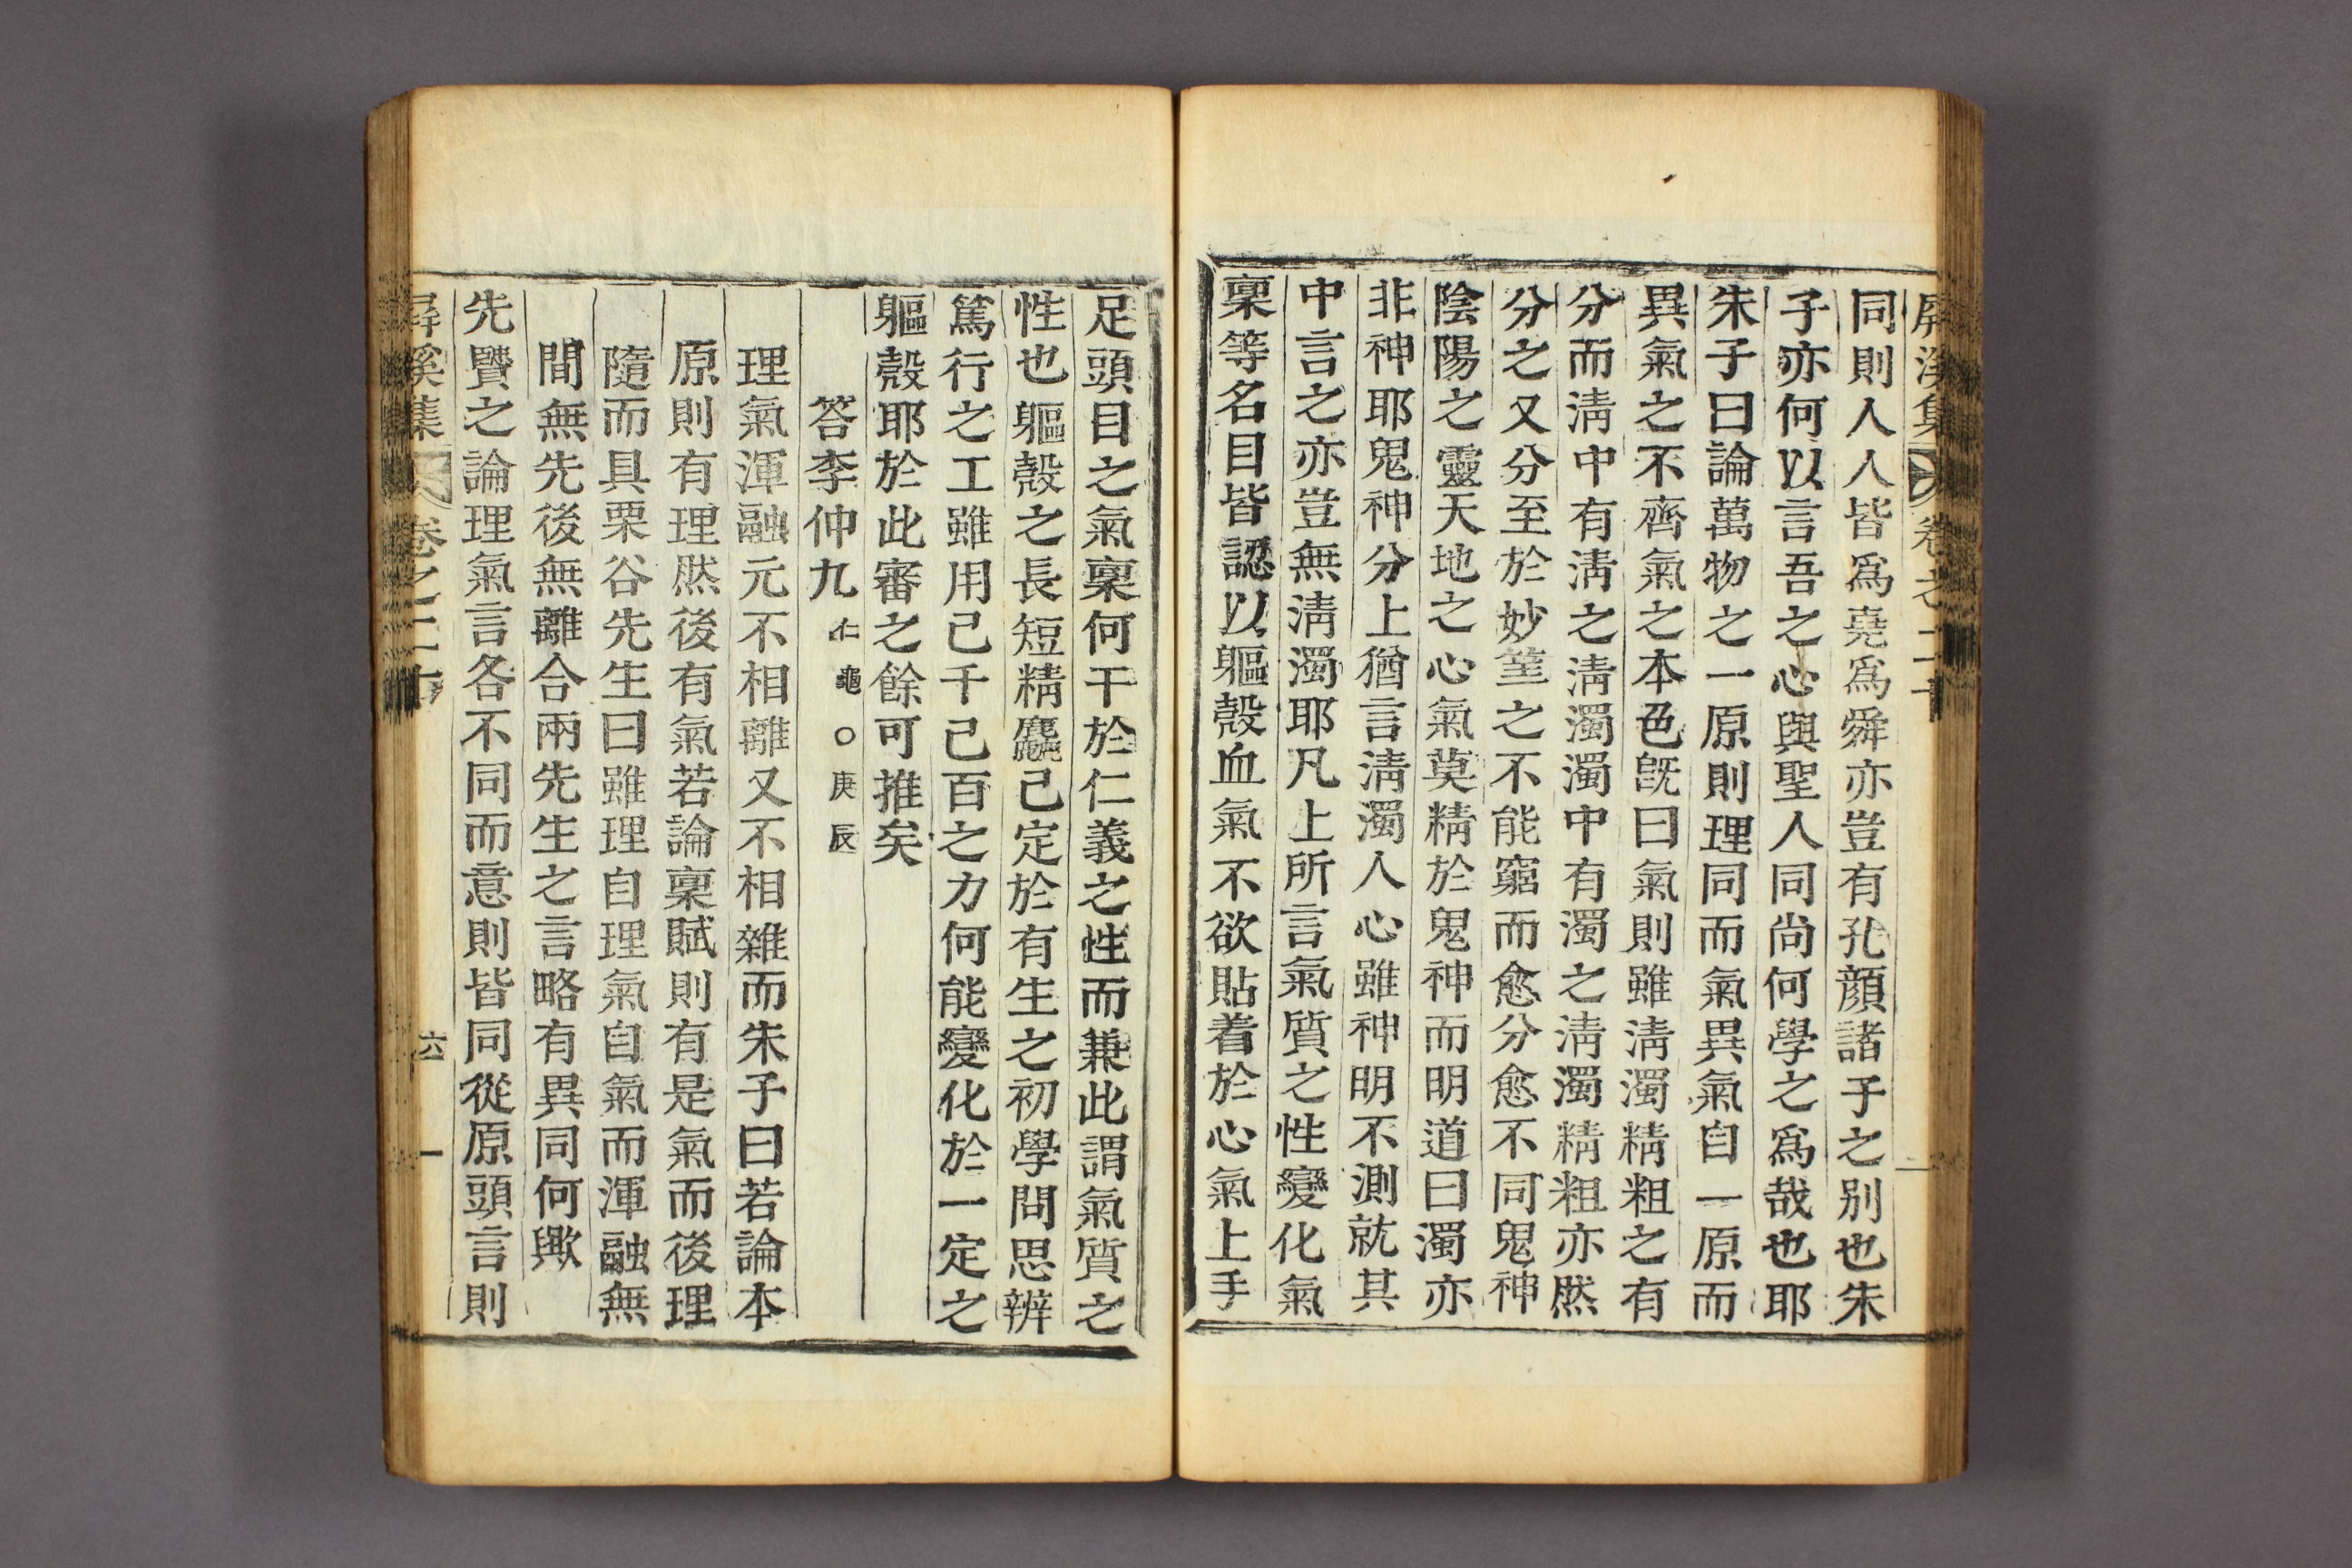 屛溪集 卷之二十
同則人人皆爲堯爲舜亦豈有孔顔諸子之別也朱
子亦何以言吾之心與聖人同尙何學之爲哉也耶
朱子曰論萬物之一原則理同而氣異氣自一原而
異氣之不齊氣之本色旣曰氣則雖淸濁精粗之有
分而淸中有淸之淸濁濁中有濁之淸濁精粗亦然
分之又分至於妙莖之不能窮而愈分愈不同鬼神
陰陽之靈天地之心氣莫精於鬼神而明道曰濁亦
非神耶鬼神分上猶言淸濁人心雖神明不測就其
中言之亦豈無淸濁耶凡上所言氣質之性變化氣
稟等名目皆認以軀殼血氣不欲貼着於心氣上手
足頭目之氣稟何干於仁義之性而兼此謂氣質之
性也軀殼之長短精麤己定於有生之初學問思辨
篤行之工雖用己千己百之力何能變化於一定之
軀殼耶於此審之餘可推矣
答李仲九 仁龜○庚辰
理氣渾融元不相離又不相雜而朱子曰若論本
原則有理然後有氣若論稟賦則有是氣而後理
隨而具栗谷先生曰雖理自理氣自氣而渾融無
間無先後無離合兩先生之言略有異同何歟
先贒之論理氣言各不同而意則皆同從原頭言則
屛溪集 卷之二十 六 一